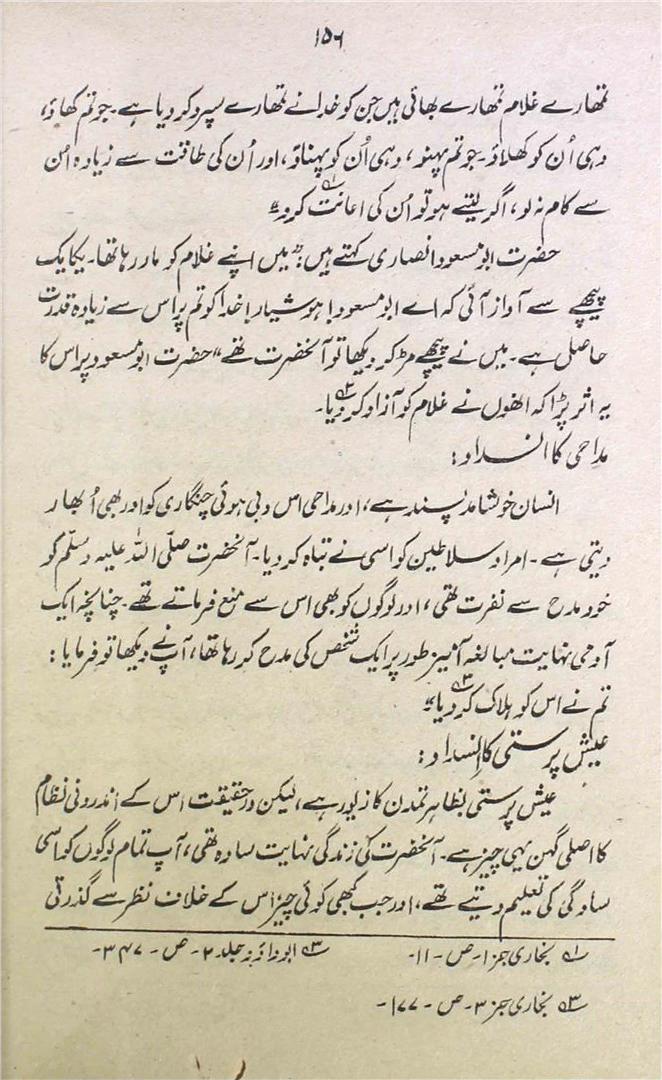 ۱۵۶
تمھارے غلام تمھارے بھائی ہیں جن کو خدا نے تمھارے سپرد کر دیا ہے۔ جو تم کھاؤ،
وہی اُن کو کھلاؤ۔ جو تم پہنو، وہی اُن کو پہناؤ، اور اُن کی طاقت سے زیادہ اُن
سے کام نہ لو، اگر لیتے ہو تو اُن کی اعانت کرو۔“ ؎۱
حضرت ابو مسعود انصاری کہتے ہیں: ”میں اپنے غلام کو مار رہا تھا۔ یکایک
پیچھے سے آواز آئی کہ اے ابو مسعود! ہوشیار! خدا کو تم پر اس سے زیادہ قدرت
حاصل ہے۔ میں نے پیچھے مڑ کر دیکھا تو آنحضرت تھے“ حضرت ابو مسعود پر اس کا
یہ اثر پڑا کہ انھوں نے غلام کو آزاد کر دیا۔ ؎۲
مداحی کا انسداد:
انسان خوشامد پسند ہے، اور مداحی اس دبی ہوئی چنگاری کو اور بھی اُبھار
دیتی ہے۔ امراء و سلاطین کو اسی نے تباہ کر دیا۔ آنحضرت صلّی اللہ علیہ وسلّم کو
خود مدح سے نفرت تھی، اور لوگوں کو بھی اس سے منع فرماتے تھے۔ چنانچہ ایک
آدمی نہایت مبالغہ آمیز طور پر ایک شخص کی مدح کر رہا تھا، آپ نے دیکھا تو فرمایا:
تم نے اس کو ہلاک کر دیا“ ؎۳
عیش پرستی کا انسداد:
عیش پرستی بظاہر تمدن کا زیور ہے، لیکن درحقیقت اس کے اندرونی نظام
کا اصلی گہن یہی چیز ہے۔ آنحضرت کی زندگی نہایت سادہ تھی، آپ تمام لوگوں کو اسی
سادگی کی تعلیم دیتے تھے، اور جب کبھی کوئی چیز اس کے خلاف نظر سے گذرتی
؎۱ بخاری جز ۱۔ ص۔ ۱۱۔ ؎۲ ابوداؤد جلد ۲۔ ص۔ ۳۴۷۔
؎۳ بخاری جز ۳۔ ص۔ ۱۷۷۔